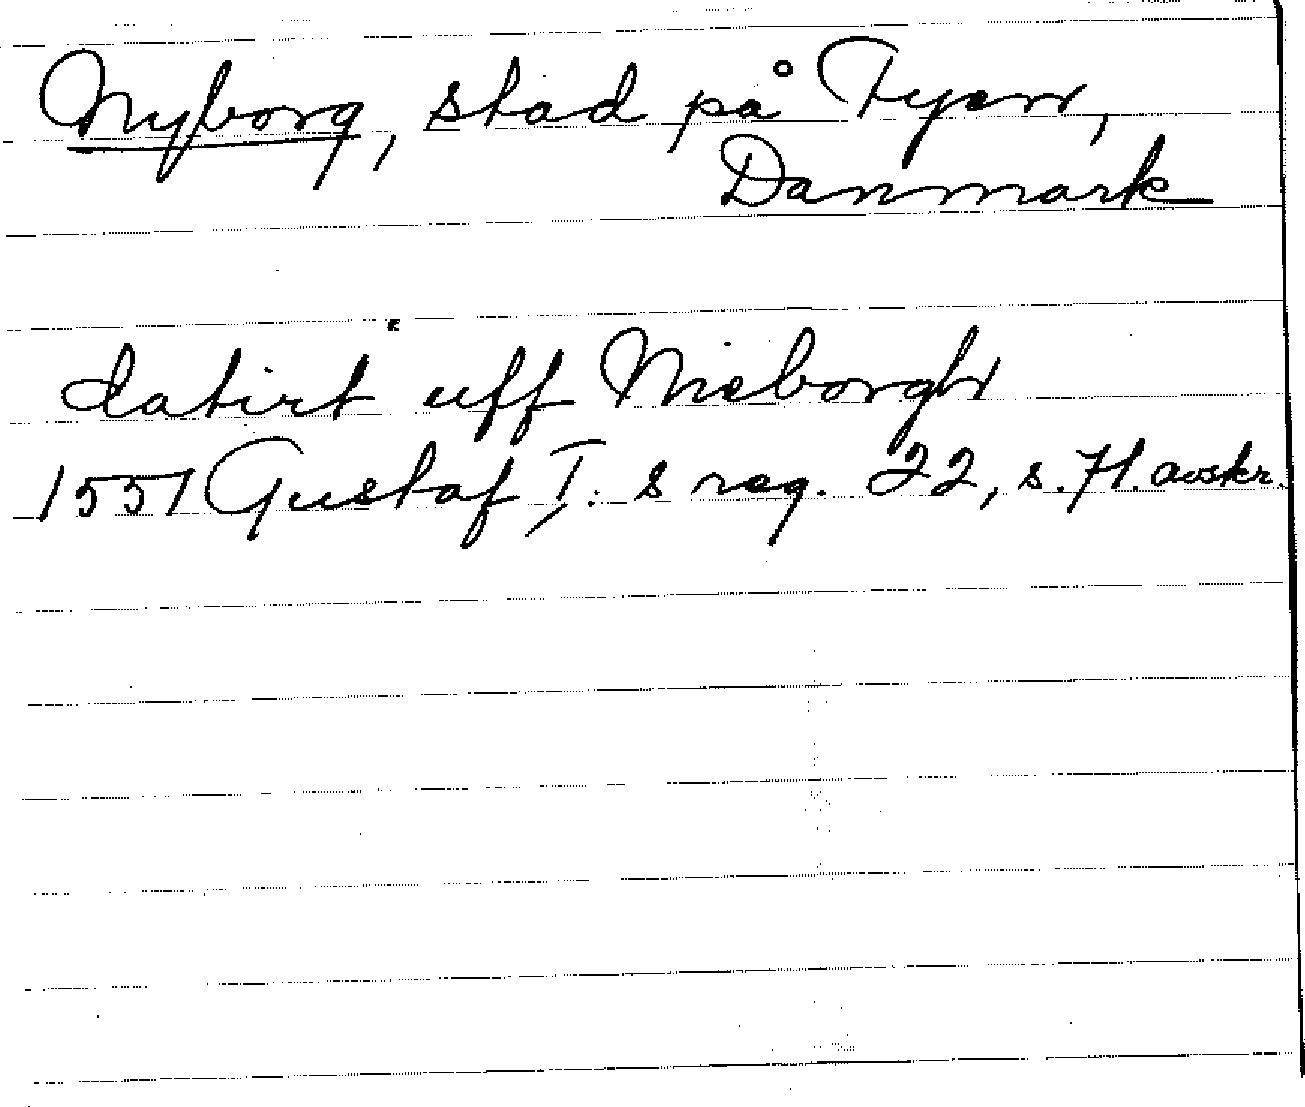 Nyborg, stad på Fyen,
Danmark
datirt uff Nieborgh
1551 Gustaf I:s reg. 22, s. 71. avskr.